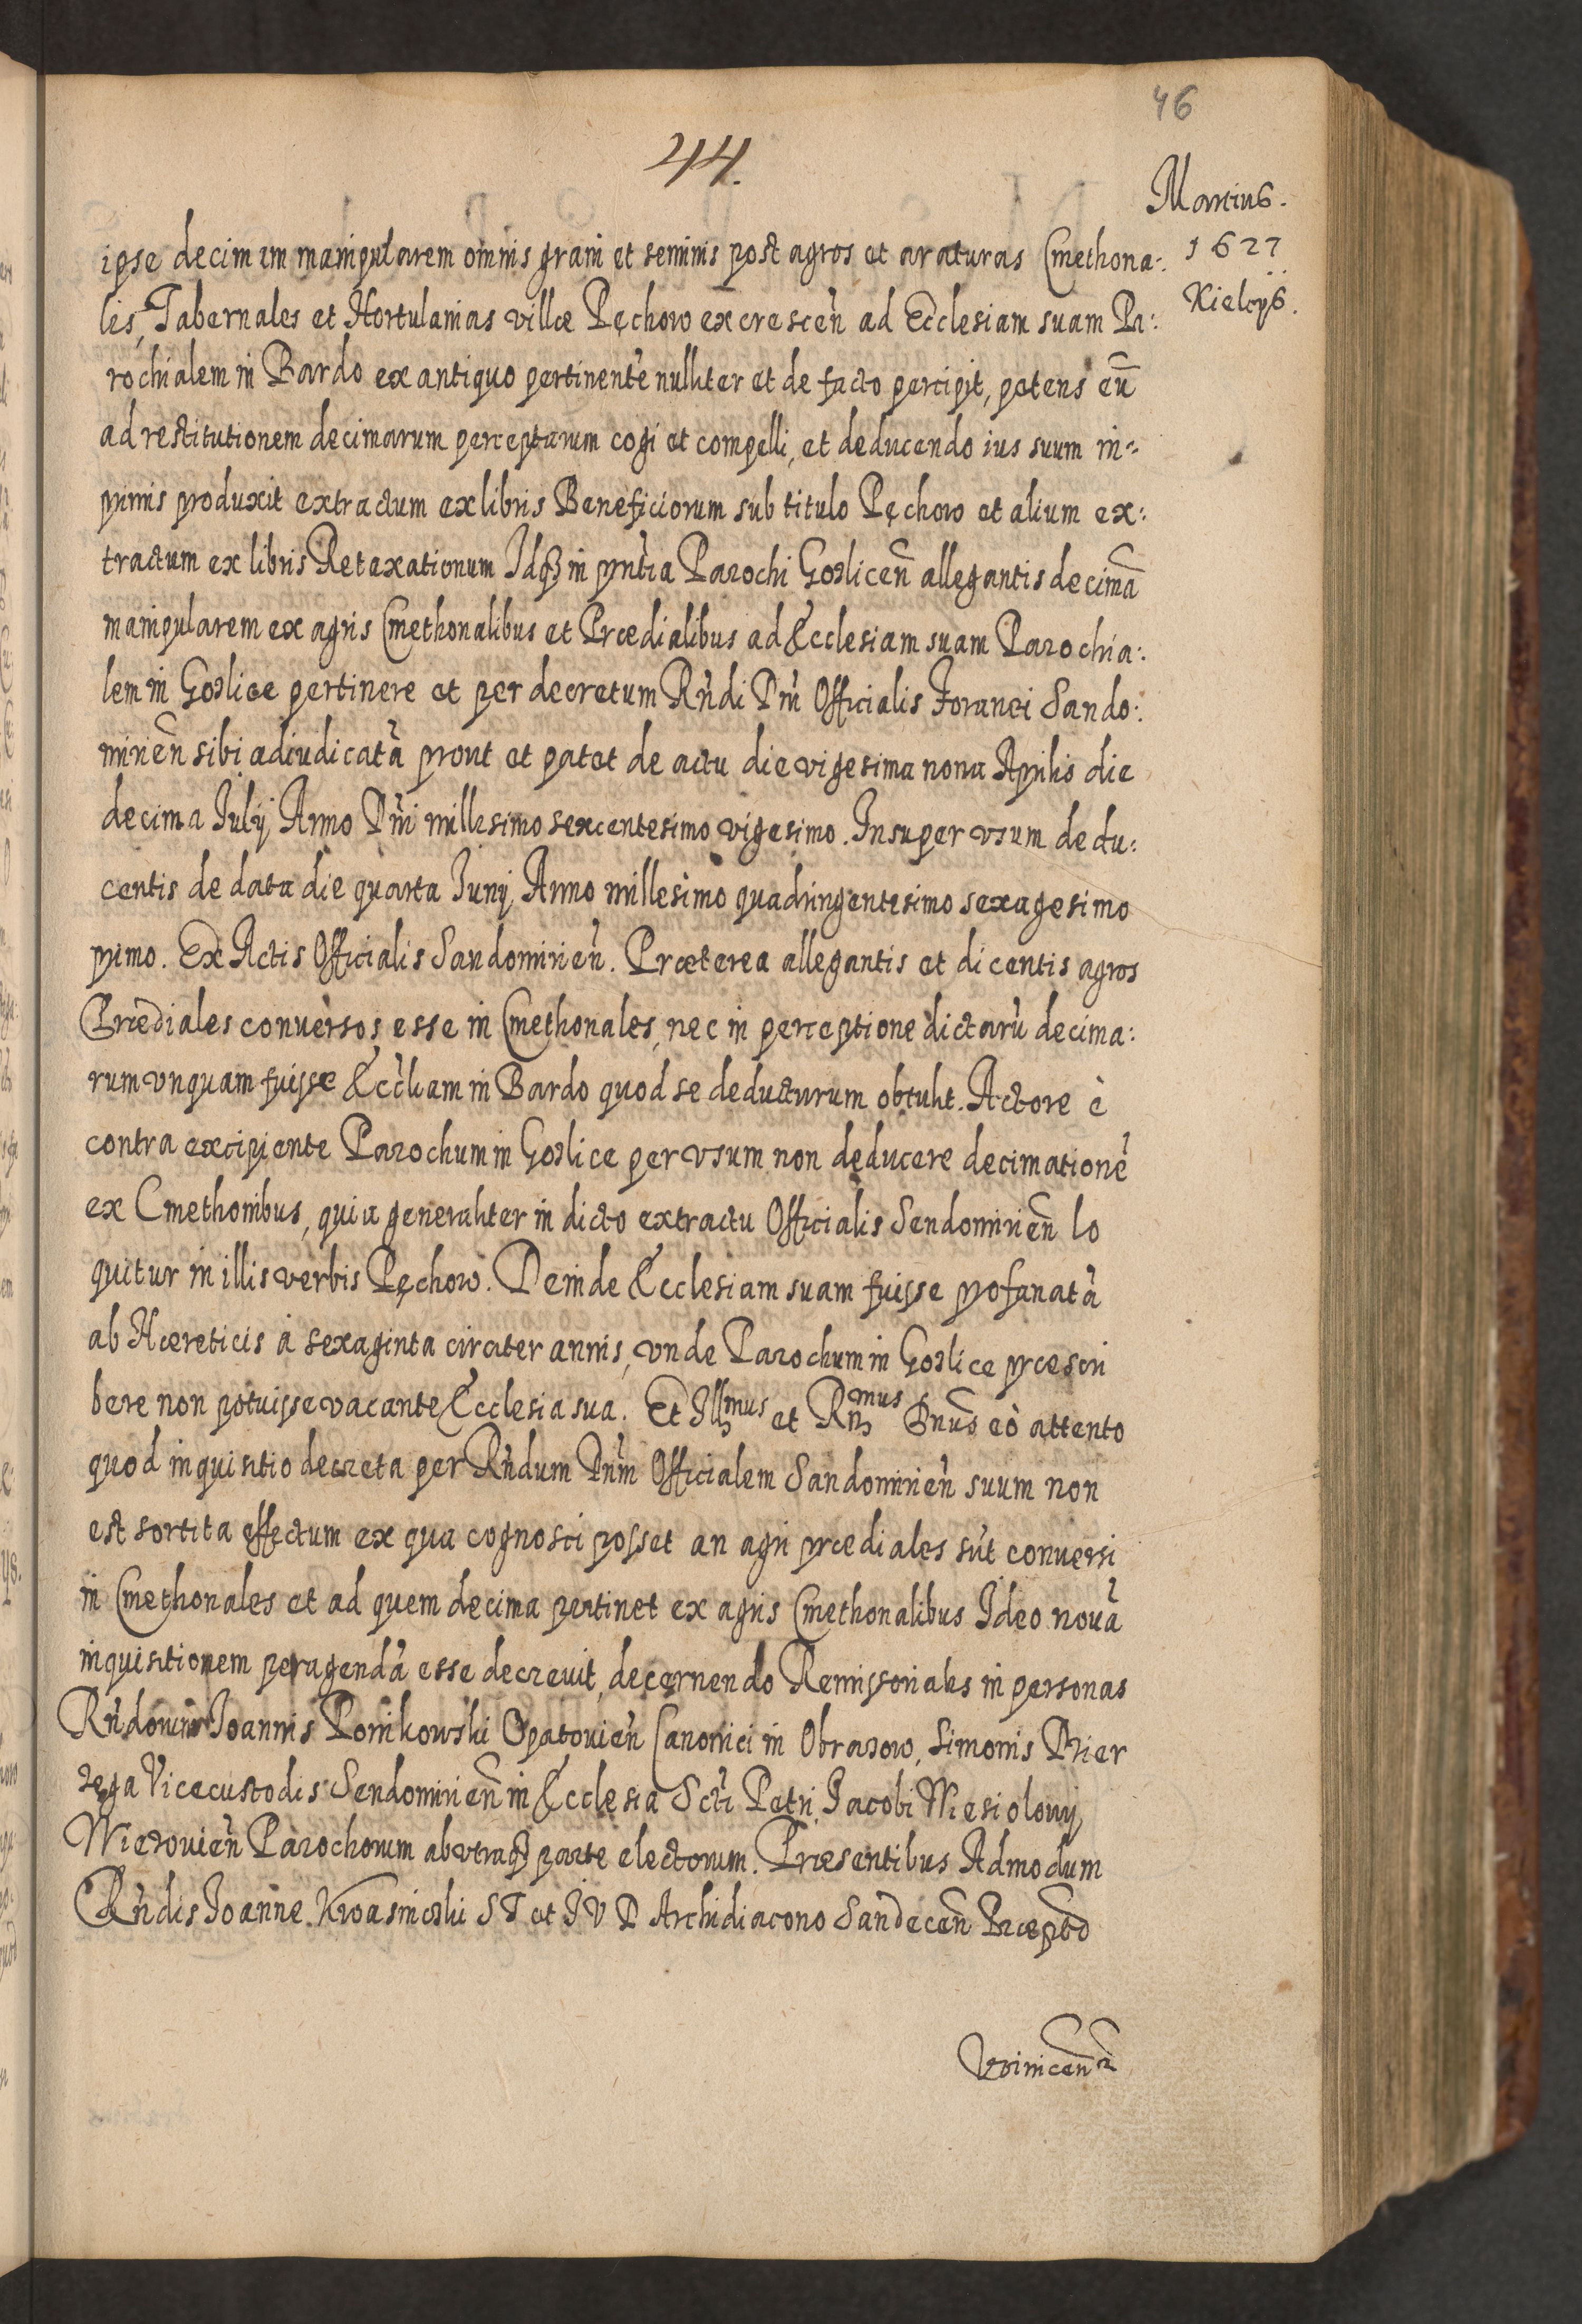 46
44.
Martius.
1627
Kielcijs.
ipse decimam manipularem omnis grani et seminis post agros et araturas Cmethona:
les, Tabernales et Hortulanias villæ Pęchow excrescen̄ ad Ecclesiam suam Pa:
rochialem in Bardo ex antiquo pertinentē nulliter et de facto percipit, petens eū
ad restitutionem decimarum perceptarum cogi et compelli, et deducendo ius suum in=
primis produxit extractum ex libris Beneficiorum sub titulo Pęchow et alium ex:
tractum ex libris Retaxationum Idq3 in pn̄tia Parochi Goslicen̄ allegantis decimā
manipularem ex agris Cmethonalibus et Prædialibus ad Ecclesiam suam Parochia:
lem in Goslice pertinere et per decretum Rn̄di Dn̄i Officialis Foranei Sando:
mirien̄ sibi adiudicatā prout et patet de actu die vigesima nona Aprilis die
decima Iulij Anno Dn̄i millesimo sexcentesimo vigesimo. Insuper vsum dedu:
centis de data die quarta Iunij Anno millesimo quadringentesimo sexagesimo
primo. Ex Actis Officialis Sandomirien̄. Præterea allegantis et dicentis agros
Prædiales conuersos esse in Cmethonales, nec in perceptione dictarū decima:
rum vnquam fuisse Eccliam in Bardo quod se deducturum obtulit. Actore è
contra excipiente Parochum in Goslice per vsum non deducere decimationē
ex Cmethonibus, quia generaliter in dicto extractu Officialis Sendomirien̄ lo
quitur in illis verbis Pęchow. Deinde Ecclesiam suam fuisse profanatā
ab Hæreticis à sexaginta circiter annis, vnde Parochum in Goslice præscri
bere non potuisse vacante Ecclesia sua. Et Illmus et Rmus Dnūs eò attento
quod inquisitio decreta per Rn̄dum Dn̄m Officialem Sandomirien̄ suum non
est sortita effectum ex qua cognosci posset an agri prædiales sūt conuersi
in Cmethonales et ad quem decima pertinet ex agris Cmethonalibus Ideo nouā
inquisitionem peragendā esse decreuit, decernendo Remissoriales in personas
Rn̄dorum Ioannis Ponikowski Opatouien̄ Canonici in Obrazow, Simonis Pier
rega Vicecustodis Sendomirien̄ in Ecclesia Scti Petri, Jacobi Wiesiolowij
Wierouien̄ Parochorum ab vtraq3 parte electorum. Præsentibus Admodum
Rn̄dis Ioanne Kwasnicski S T et I V D Archidiacono Sandecen̄ Præpto